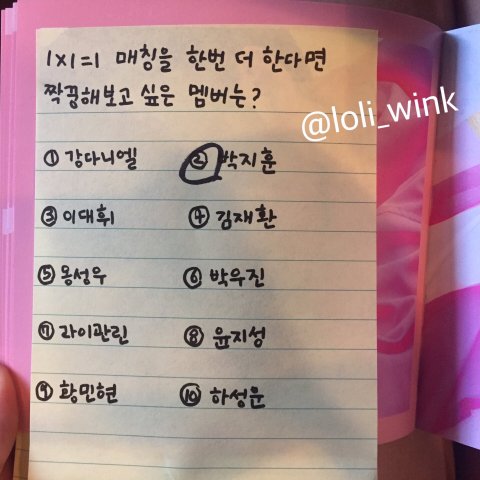 1X1=1 매칭을 한번 더 한다면
짝꿍해보고 싶은 멤버는?
@loli_wink
① 강다니엘 ② 박지훈
③ 이대휘 ④ 김재환
⑤ 옹성우 ⑥ 박우진
⑦ 라이관린 ⑧ 윤지성
⑨ 황민현 ⑩ 하성운